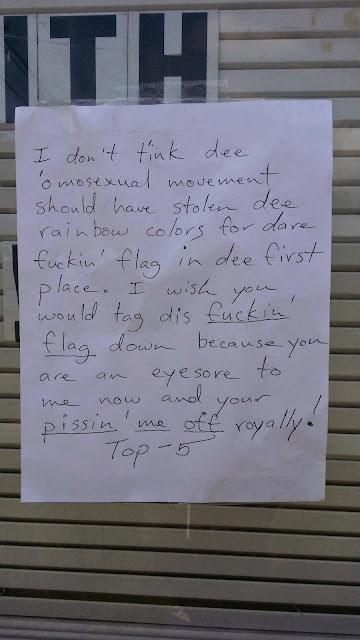 ITH
I don't t'ink dee
'omosexual movement
should have stolen dee
rainbow colors for dare
fuckin' flag in dee first
place. I wish you
would tag dis fuckin'
flag down because you
are an eyesore to
me now and your
pissin' me off royally!
Top-5